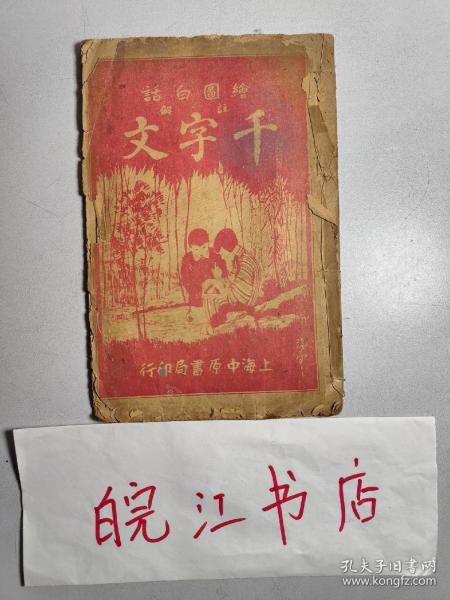 繪圖白話
註解
千字文
上海中原書局印行
皖江书店
孔夫子旧书网
www.kongfz.com